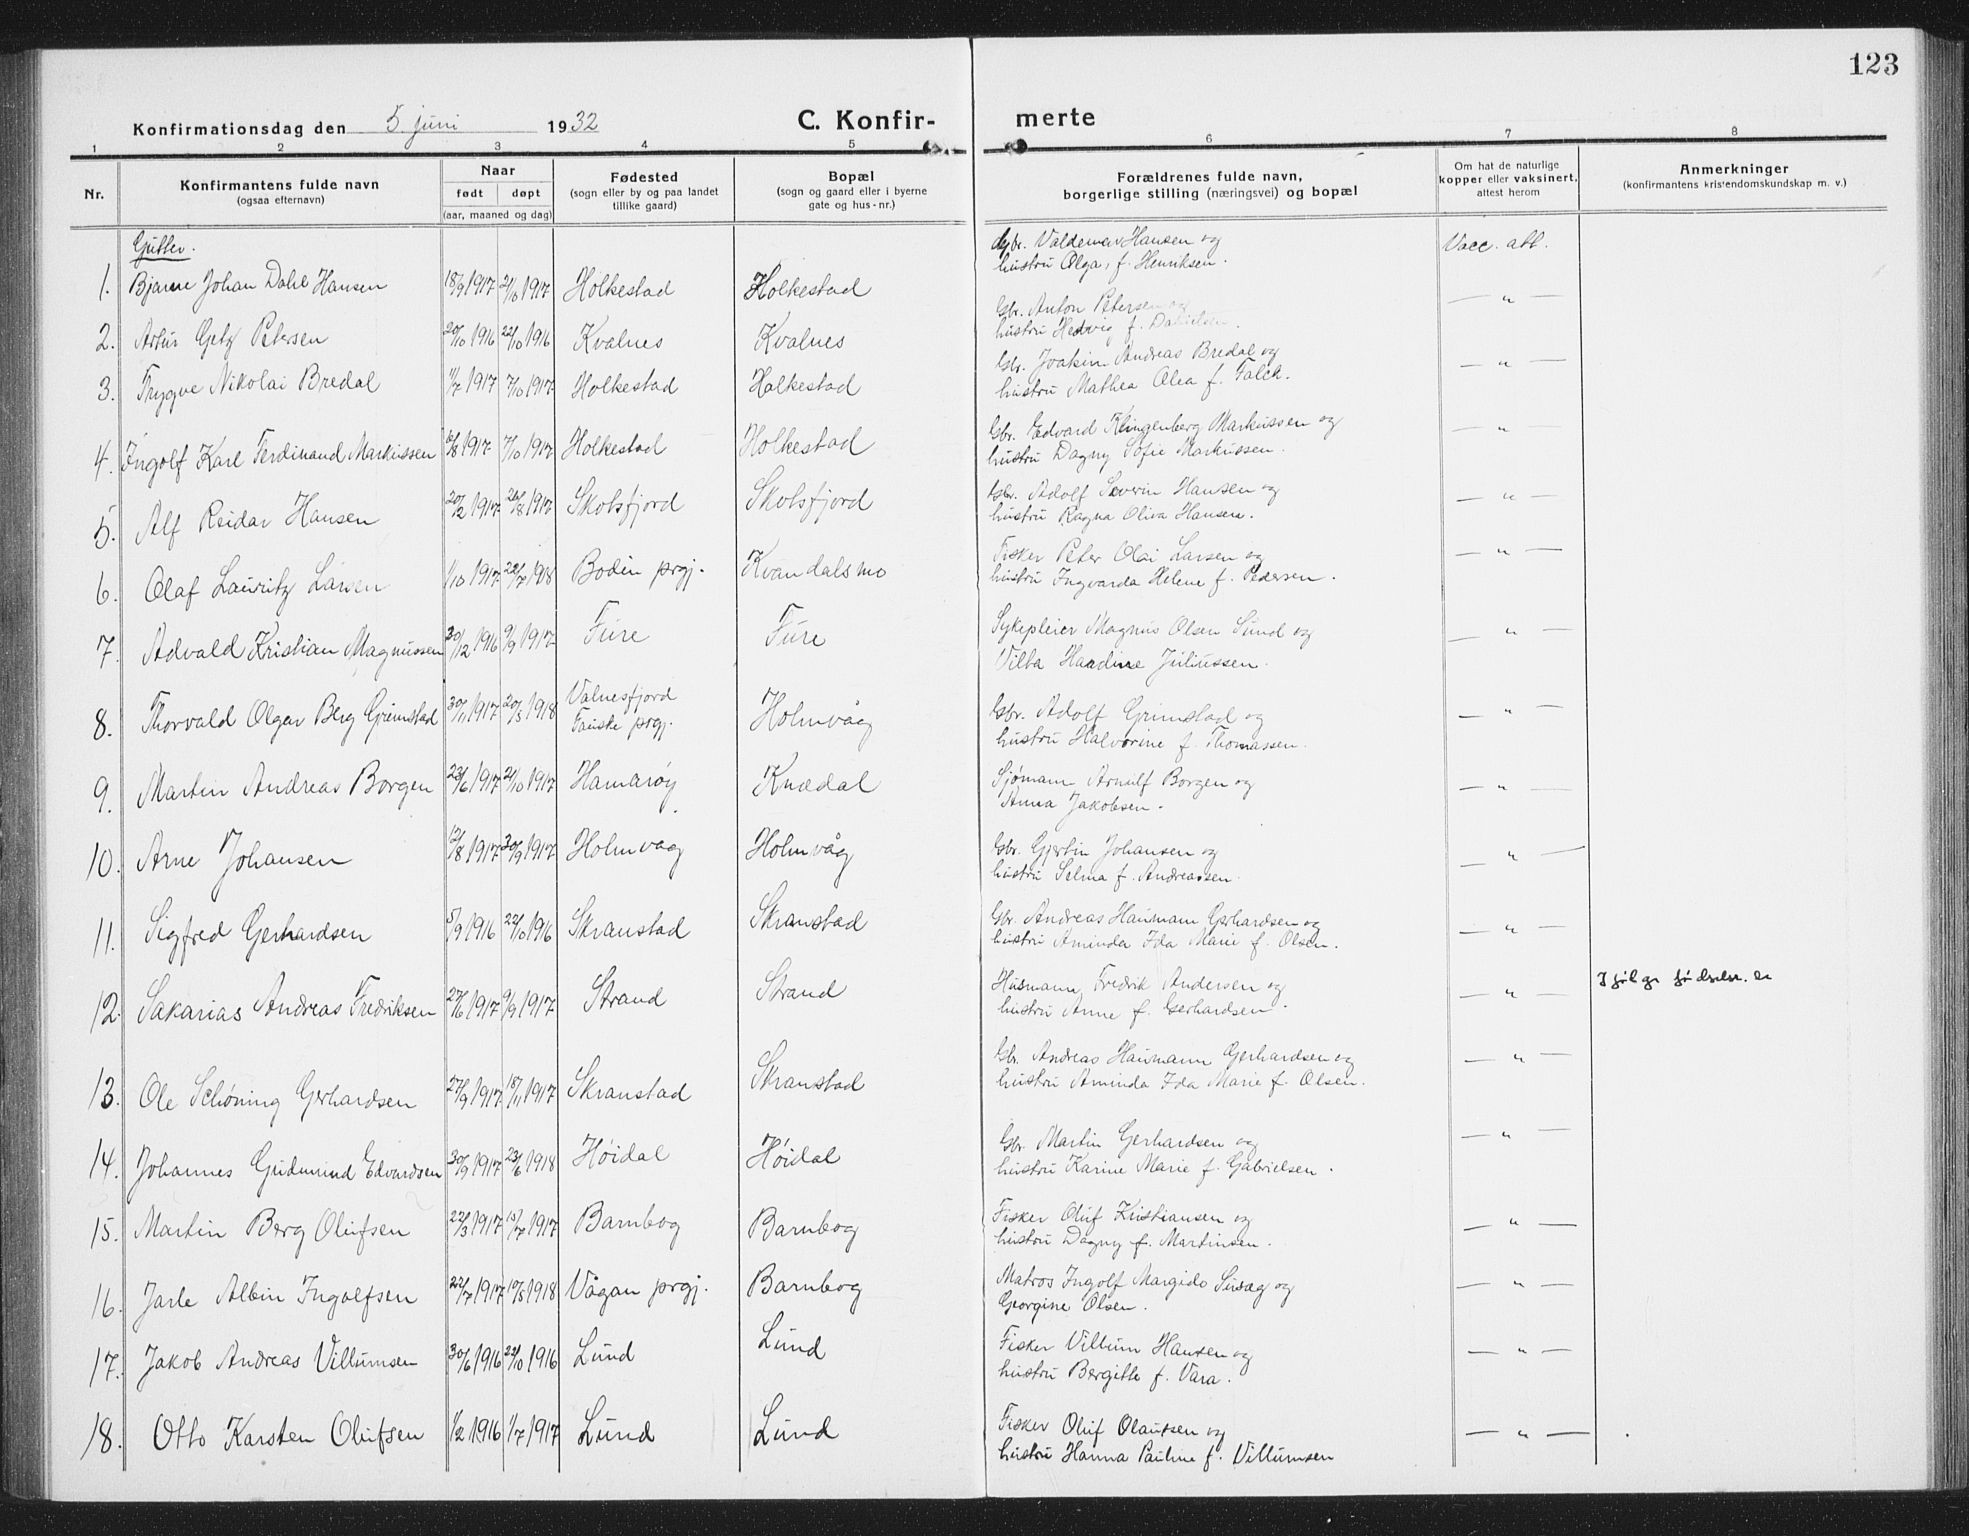 123
Konfirmationsdag den 5. juni 1932 C. Konfir- merte
1 2 3 4 5 6 7 8
Nr. Konfirmantens fulde navn (ogsaa efternavn) Naar født døpt (aar, maaned og dag) Fødested (sogn eller by og paa landet tillike gaard) Bopæl (sogn og gaard eller i byerne gate og hus-nr.) Forældrenes fulde navn, borgerlige stilling (næringsvei) og bopæl Om hat de naturlige kopper eller vaksinert, attest herom Anmerkninger (konfirmantens kristendomskundskap m. v.)
Gutter.
1. Bjarne Johan Dahl Hansen 18/9 1917 21/10 1917 Holkestad Holkestad Gbr. Valdemar Hansen og Vacc. att.
hustru Olga, f. Henriksen.
2. Artur Getz Petersen 20/10 1916 22/10 1916 Kvalnes Kvalnes Gbr. Anton Petersen og — " —
hustru Hedvig f. Danielsen.
3. Trygve Nikolai Bredal 11/7 1917 7/10 1917 Holkestad Holkestad Gbr. Joakim Andreas Bredal og — " —
hustru Mathea Olea f. Falch.
4. Ingolf Karl Ferdinand Markussen 1917 7/10 1917 Holkestad Holkestad Gbr. Edvard Klingenberg Markussen og — " —
hustru Dagny Sofie Markussen.
5. Alf Reidar Hansen 20/2 1917 26/8 1917 Skotsfjord Skotsfjord Gbr. Adolf Severin Hansen og — " —
hustru Ragna Oliva Hansen.
6. Olaf Lauritz Larsen 1/10 1917 22/7 1918 Bodin prgj. Kvandalsmo Fisker Peter Olai Larsen og — " —
hustru Ingvarda Helene f. Pedersen.
7. Advald Kristian Magnussen 30/12 1916 9/9 1917 Fure Fure Sykepleier Magnus Olsen Sund og — " —
Vilba Haadine Juliussen.
8. Thorvald Olgar Berg Grimstad 30/11 1917 20/5 1918 Valnesfjord Fauske prgj. Holmvåg Gbr. Adolf Grimstad og — " —
hustru Halvorine f. Thomassen.
9. Martin Andreas Borgen 23/6 1917 21/10 1917 Hamarøy Knædal Sjømann Arnulf Borgen og — " —
Anna Jakobsen.
10. Arne Johansen 12/8 1917 30/9 1917 Holmvåg Holmvåg Gbr. Gjertin Johansen og — " —
hustru Selma f. Andreassen.
11. Sigfred Gerhardsen 5/9 1916 22/10 1916 Skranstad Skranstad Gbr. Andreas Hausmann Gerhardsen og — " —
hustru Aminda Ida Marie f. Olsen.
12. Sakarias Andreas Fredriksen 27/6 1917 9/9 1917 Strand Strand Husmann Fredrik Andersen og — " —
hustru Anne f. Gerhardsen.
13. Ole Schøning Gerhardsen 27/9 1917 18/11 1917 Skranstad Skranstad Gbr. Andreas Hausmann Gerhardsen og — " —
hustru Aminda Ida Marie f. Olsen.
14. Johannes Gudmund Edvardsen 30/9 1917 23/6 1918 Høidal Høidal Gbr. Martin Gerhardsen og — " —
hustru Karine Marie f. Gabrielsen.
15. Martin Berg Olufsen 22/3 1917 15/7 1917 Barnbog Barnbog Fisker Oluf Kristiansen og — " —
hustru Dagny f. Martinsen.
16. Jarle Albin Ingolfsen 22/7 1917 10/5 1918 Vågan prgj. Barnbog Matros Ingolf Margido og — " —
Georgine Olsen.
17. Jakob Andreas Villumsen 30/6 1916 22/10 1916 Lund Lund Fisker Villum Hansen og — " —
hustru Bergitte f. Vara.
18. Otto Karsten Olufsen 1/2 1916 1/7 1917 Lund Lund Fisker Oluf Olaufsen og — " —
hustru Hanna Pauline f. Villumsen